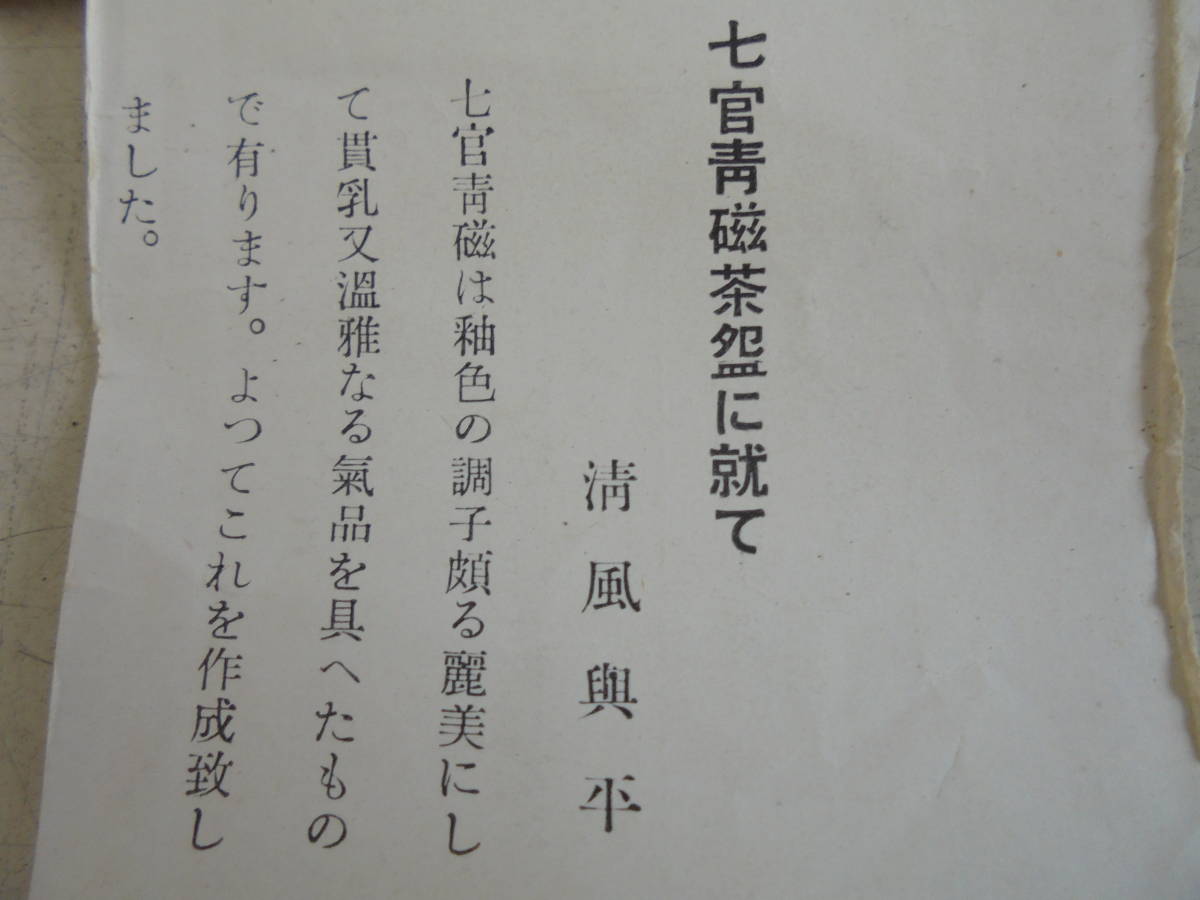 七官靑磁茶盌に就て
淸風與平
七官靑磁は釉色の調子頗る麗美にし
て貫乳又溫雅なる氣品を具へたもの
で有ります。よつてこれを作成致し
ました。